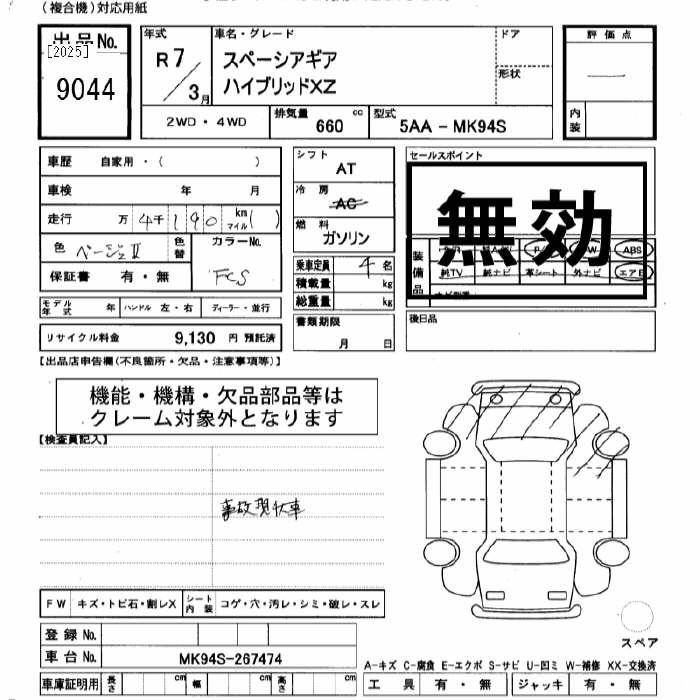 (複合機)対応用紙
出品No.
[2025]
9044
年式
R7/3月
車名・グレード
スペーシアギア
ハイブリッドXZ
ドア
形状
評価点
—
内装
2WD・4WD
排気量 660 cc
型式 5AA－MK94S
車歴 自家用・( )
車検 年 月
走行 万4千190 km マイル( )
色 ベージュII 色替
カラーNo. FCS
保証書 有・無
モデル年式 年 ハンドル 左・右 ディーラー・並行
リサイクル料金 9,130 円 預託済
シフト AT
冷房 AC
燃料 ガソリン
乗車定員 4 名
積載量 kg
総重量 kg
書類期限
月 日
セールスポイント
無効
装備品
ABS
純TV 純ナビ 革シート 外ナビ エアB
後日品
【出品店申告欄(不良箇所・欠品・注意事項等)】
機能・機構・欠品部品等は
クレーム対象外となります
【検査員記入】
事故現状車
FW キズ・トビ石・割レX シート内装 コゲ・穴・汚レ・シミ・破レ・スレ
登録No.
車台No. MK94S-267474
車庫証明用 長さ cm 幅 cm 高さ cm
スペア
A－キズ C－腐食 E－エクボ S－サビ U－凹ミ W－補修 XX－交換済
工具 有・無 ジャッキ 有・無